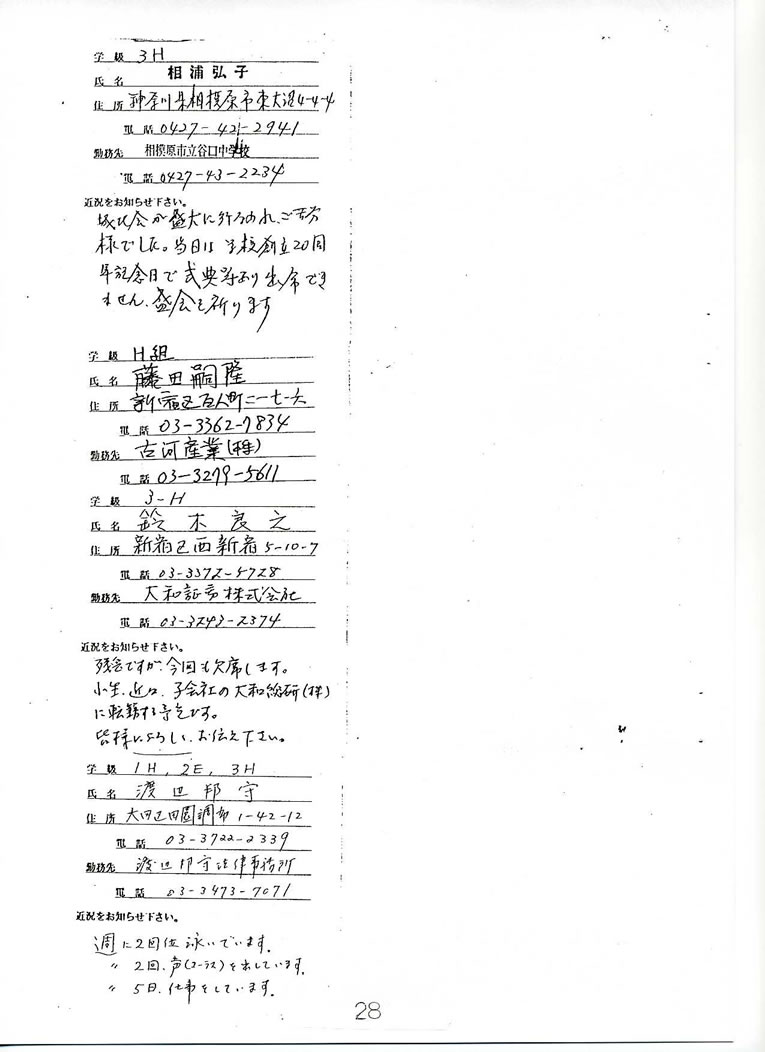 学級 3H
氏名 相浦弘子
住所 神奈川県相模原市東大沼4-4-4
電話 0427-42-2941
勤務先 相模原市立谷口中学校
電話 0427-43-2234
近況をお知らせ下さい。
城北会が盛大に行なわれ、ご苦労
様でした。当日は 学校創立20周
年記念日で式典等あり出席でき
ません、盛会を祈ります
学級 H組
氏名 藤田嗣隆
住所 新宿区百人町二一七六
電話 03-3362-7834
勤務先 古河産業(株)
電話 03-3279-5611
学級 3-H
氏名 鈴木良之
住所 新宿区西新宿5-10-7
電話 03-3372-5728
勤務先 大和証券株式会社
電話 03-3243-2374
近況をお知らせ下さい。
残念ですが、今回も欠席します。
小生、近々、子会社の大和総研(株)
に転籍する予定です。
皆様によろしくお伝え下さい。
学級 1H, 2E, 3H
氏名 渡辺邦守
住所 大田区田園調布1-42-12
電話 03-3722-2339
勤務先 渡辺邦守法律事務所
電話 03-3473-7071
近況をお知らせ下さい。
週に2回位泳いでいます。
〃 2回、声(コーラス)を出しています。
〃 5日、仕事をしています。
28